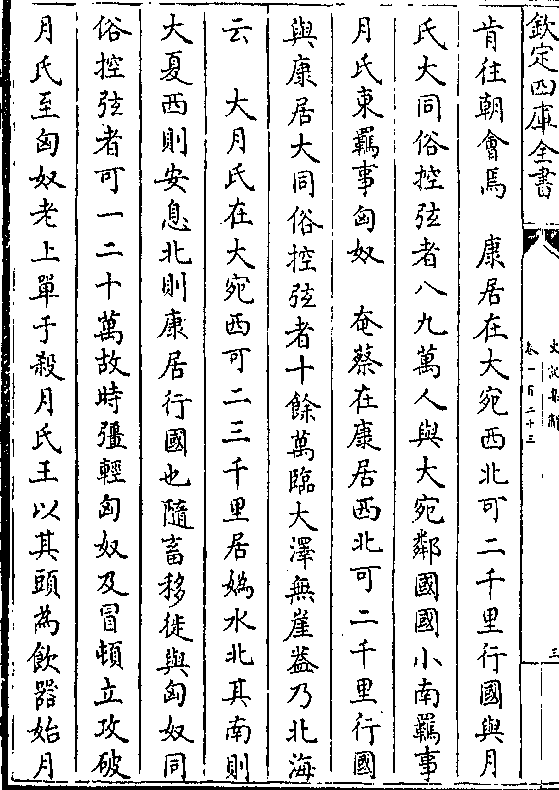 欽定四庫全書
史記集解
卷一百二十三
三
肯往朝會焉　康居在大宛西北可二千里行國與月
氏大同俗控弦者八九萬人與大宛鄰國國小南羈事
月氏東羈事匈奴　奄蔡在康居西北可二千里行國
與康居大同俗控弦者十餘萬臨大澤無崖蓋乃北海
云　大月氏在大宛西可二三千里居媯水北其南則
大夏西則安息北則康居行國也隨畜移徙與匈奴同
俗控弦者可一二十萬故時彊輕匈奴及冒頓立攻破
月氏至匈奴老上單于殺月氏王以其頭為飲器始月